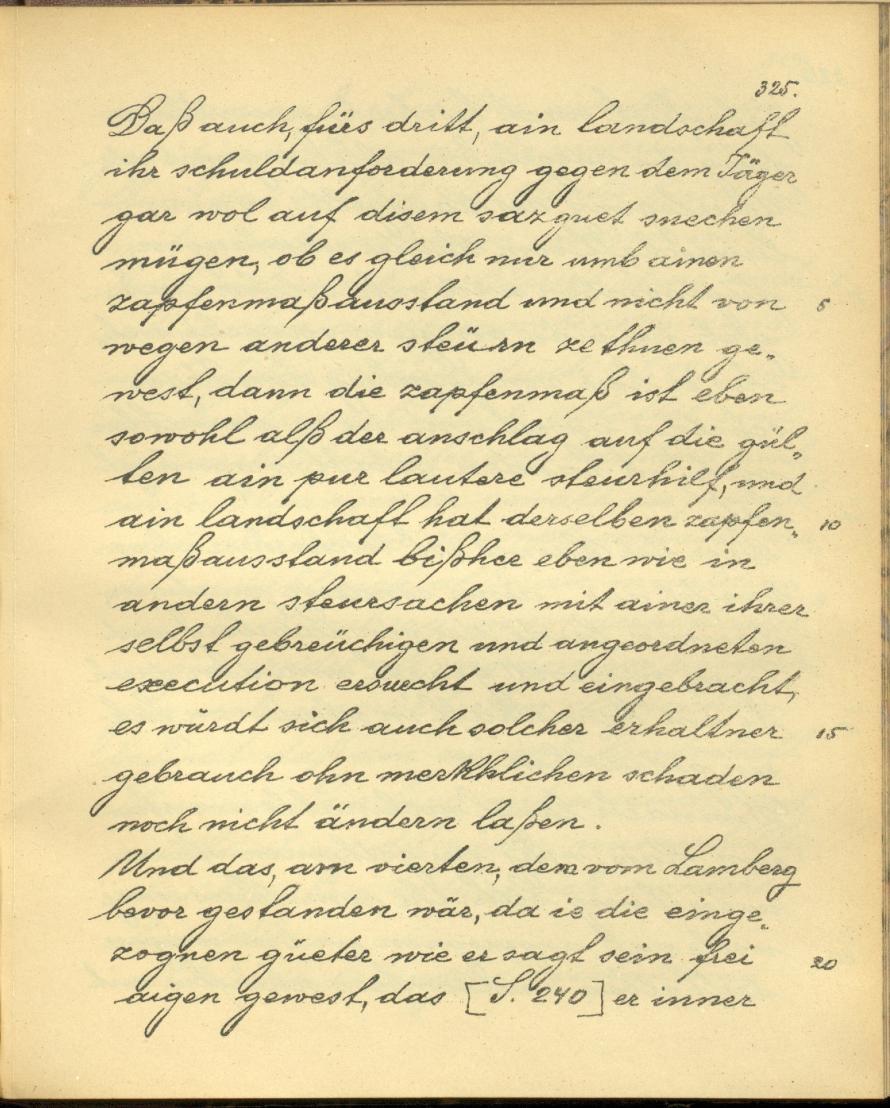 325.
Daß auch, fürs dritt, ain landschaft
ihr schuldanforderung gegen dem Jäger
gar wol auf disem sazguet suechen
mügen, ob es gleich nur umb ainen
zapfenmaßausstand und nicht von 5
wegen anderer steürn ze thuen ge„
west, dann die zapfenmaß ist eben
sowohl alß der anschlag auf die gül„
ten ain pur lautere steurhilf, und
ain landschaft hat derselben zapfen„ 10
maßausstand bißher eben wie in
andern steursachen mit ainer ihrer
selbst gebreüchigen und angeordneten
execution ersuecht und eingebracht,
es würdt sich auch solcher erhaltner 15
gebrauch ohn merkhlichen schaden
noch nicht ändern laßen.
Und das, am vierten, dem vom Lamberg
bevor gestanden wär, da ie die einge„
zognen güeter wie er sagt sein frei 20
aigen gewest, das [S. 240] er inner